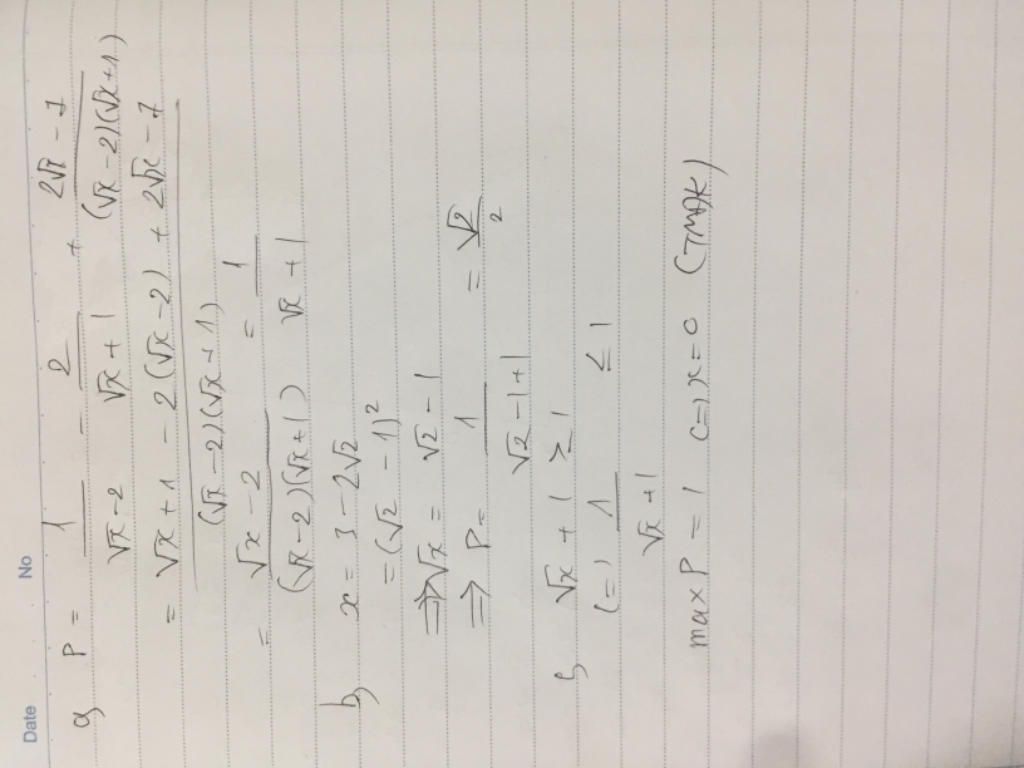 Date No
a, P = 1/(√x - 2) - 2/(√x + 1) + (2√x - 7)/((√x - 2)(√x + 1))
= (√x + 1 - 2(√x - 2) + 2√x - 7)/((√x - 2)(√x + 1))
= (√x - 2)/((√x - 2)(√x + 1)) = 1/(√x + 1)
b, x = 3 - 2√2
= (√2 - 1)²
⇒ √x = √2 - 1
⇒ P = 1/(√2 - 1 + 1) = √2/2
c, √x + 1 ≥ 1
(=) 1/(√x + 1) ≤ 1
max P = 1 (=) x = 0 (TMĐK)